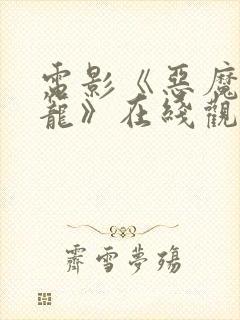 電影《惡魔
龍》在綫觀
霽雪夢殤